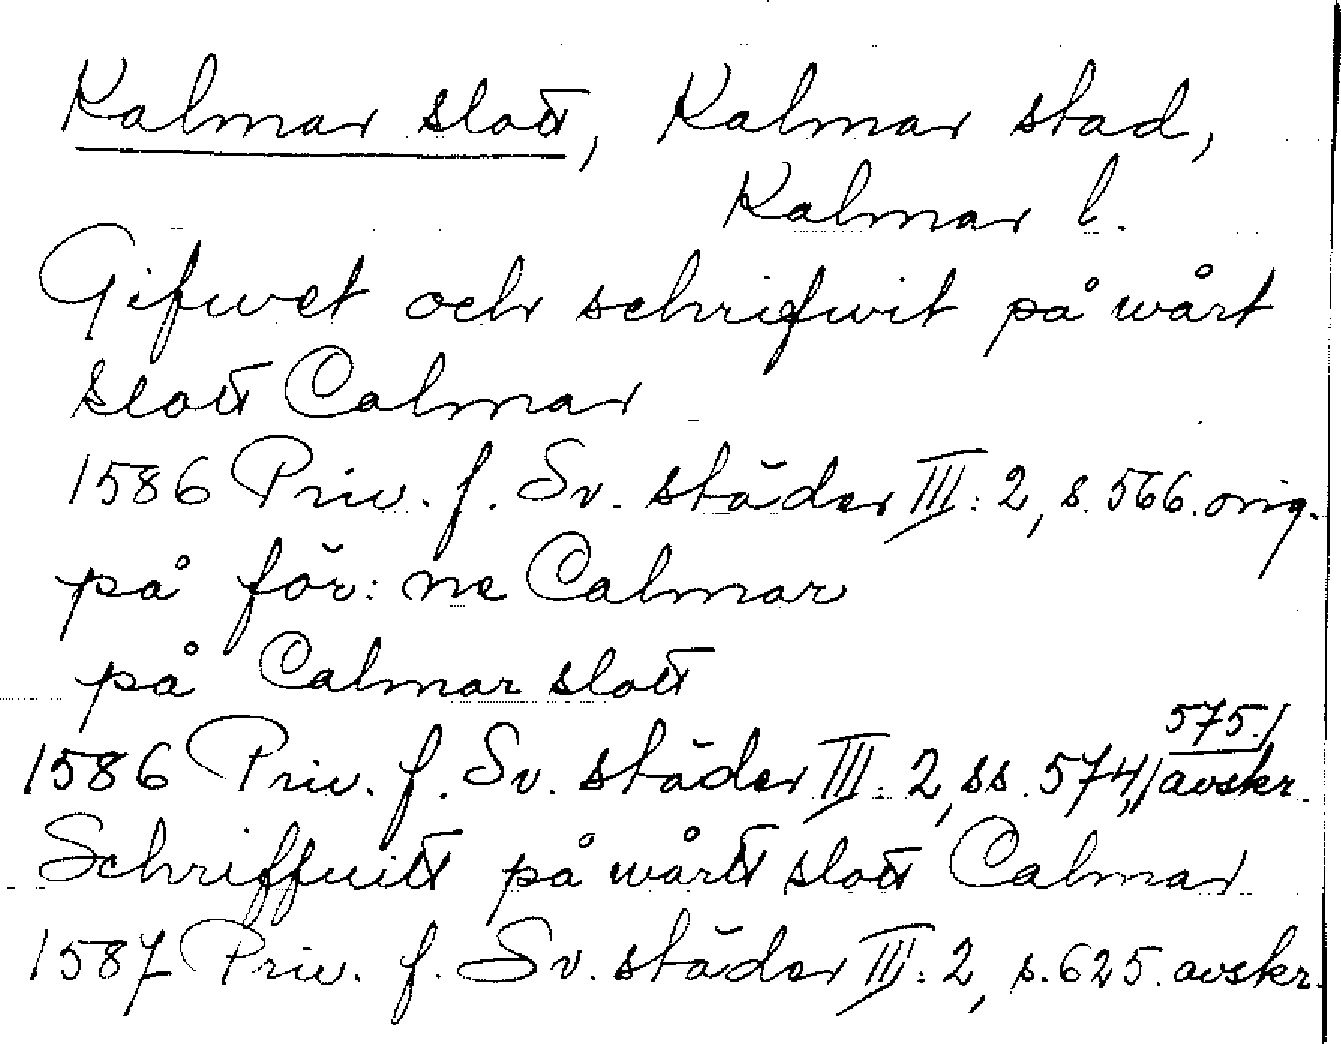 Kalmar slott, Kalmar stad,
Kalmar l.
Gifwet och schrifwit på wårt
slott Calmar
1586 Priv. f. Sv. städer III: 2, s. 566. orig.
på för: ne Calmar
på Calmar slott
1586 Priv. f. Sv. städer III: 2, ss. 574, 575. avskr.
Schriffuitt på wårtt slott Calmar
1587 Priv. f. Sv. städer III: 2, s. 625. avskr.